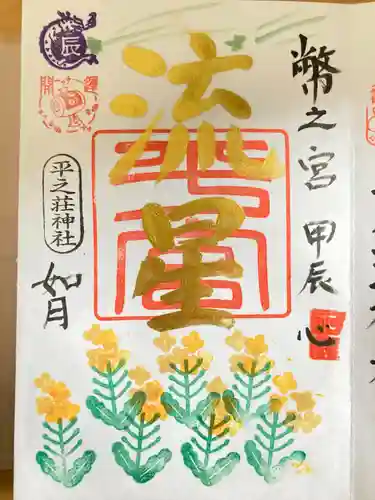 幣之宮 甲辰 心
流星
辰
開運
平之荘神社
如月